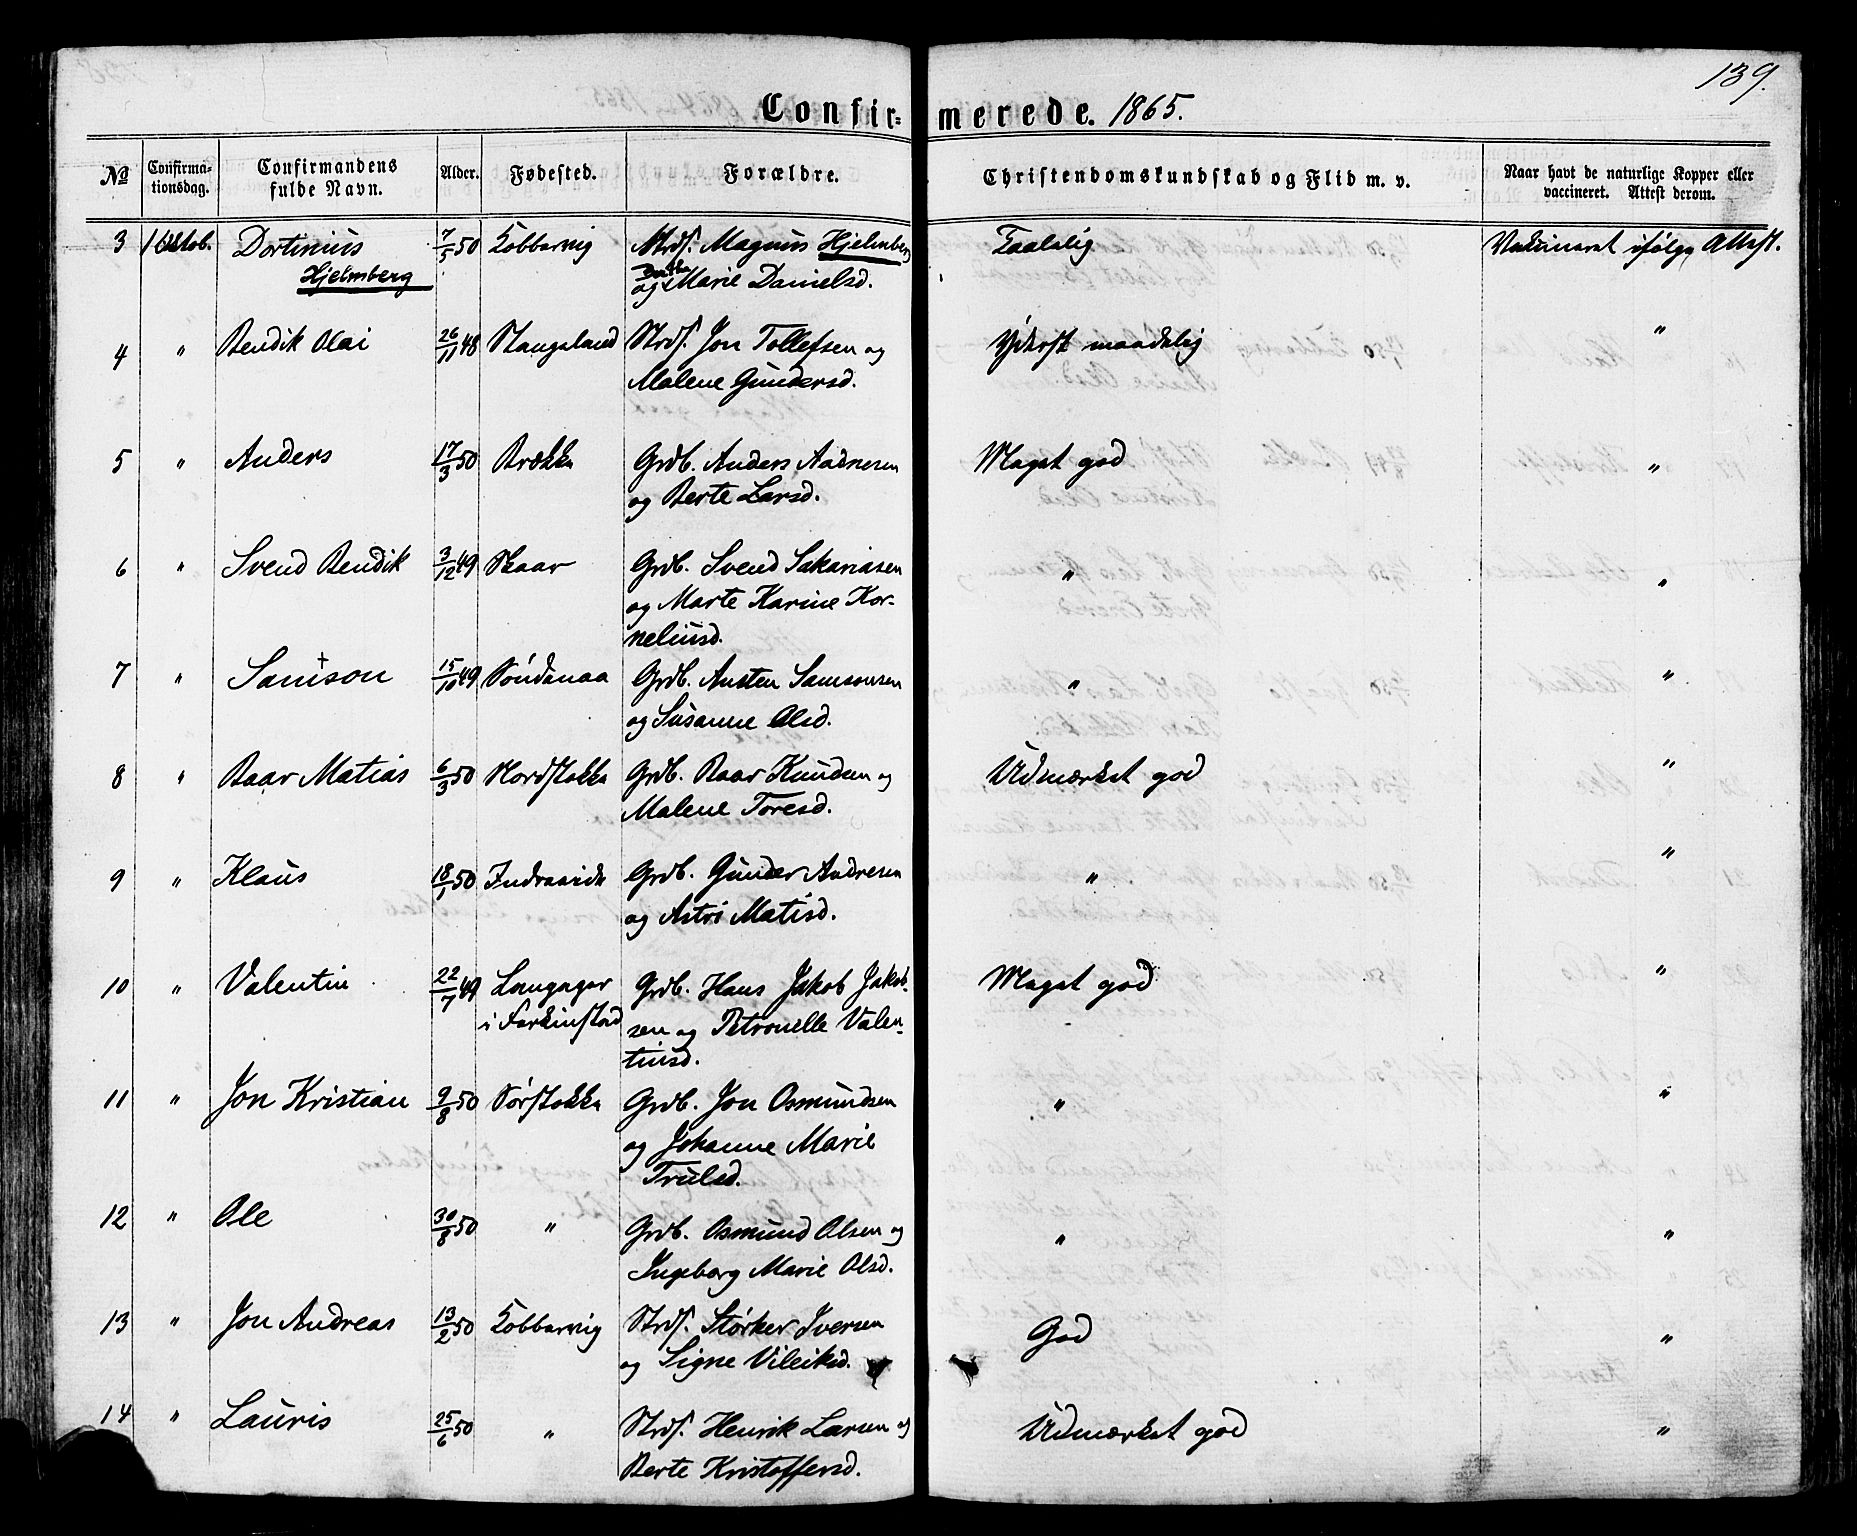 139.
Confir= merede. 1865.
No Confirma-tionsdag. Confirmandens fulde Navn. Alder. Fødested. Forældre. Christendomskundskab og Flid m. v. Naar havt de naturlige Kopper eller vaccineret. Attest derom.
3 1 Oktob. Dortinius 7/5 50 Kobbervig Strds. Magnus Hjelmberg Taalelig Vakcineret ifølge Attest.
Hjelmberg og Marie Danielsd.
4 " Bendik Olai 26/11 48 Stangeland Strds. Jon Tollefsen og Yderst maadelig "
Malene Gundersd.
5 " Anders 17/3 50 Brække Grdb. Anders Aadnesen Meget god "
og Berte Larsd.
6 " Svend Bendik 3/12 49 Skaar Grdb. Svend Sakariasen " "
og Marte Karine Kor-
neliusd.
7 " Samson 15/10 49 Søndenaa Grdb. Austen Samsonsen " "
og Susanne Olsd.
8 " Baar Matias 6/3 50 Nordstokke Grdb. Baar Knudsen og Udmærket god "
Malene Toresd.
9 " Klaus 18/1 50 Indraavde Grdb. Gunder Andresen " "
og Astri Matisd.
10 " Valentin 22/7 49 Langager Grdb. Hans Jakob Jakob- Meget god "
i Ferkinstad sen og Petronelle Valen-
tinsd.
11 " Jon Kristian 9/8 50 Sørstokke Grdb. Jon Osmundsen " "
og Johanne Marie
Trulsd.
12 " Ole 30/8 50 " Grdb. Osmund Olsen og " "
Ingeborg Marie Olsd.
13 " Jon Andreas 13/2 50 Kobbervig Strds. Størker Iversen God "
og Signe Vileiksd.
14 " Lauris 25/6 50 " Strds. Henrik Larsen og Udmærket god "
Berte Kristoffersd.